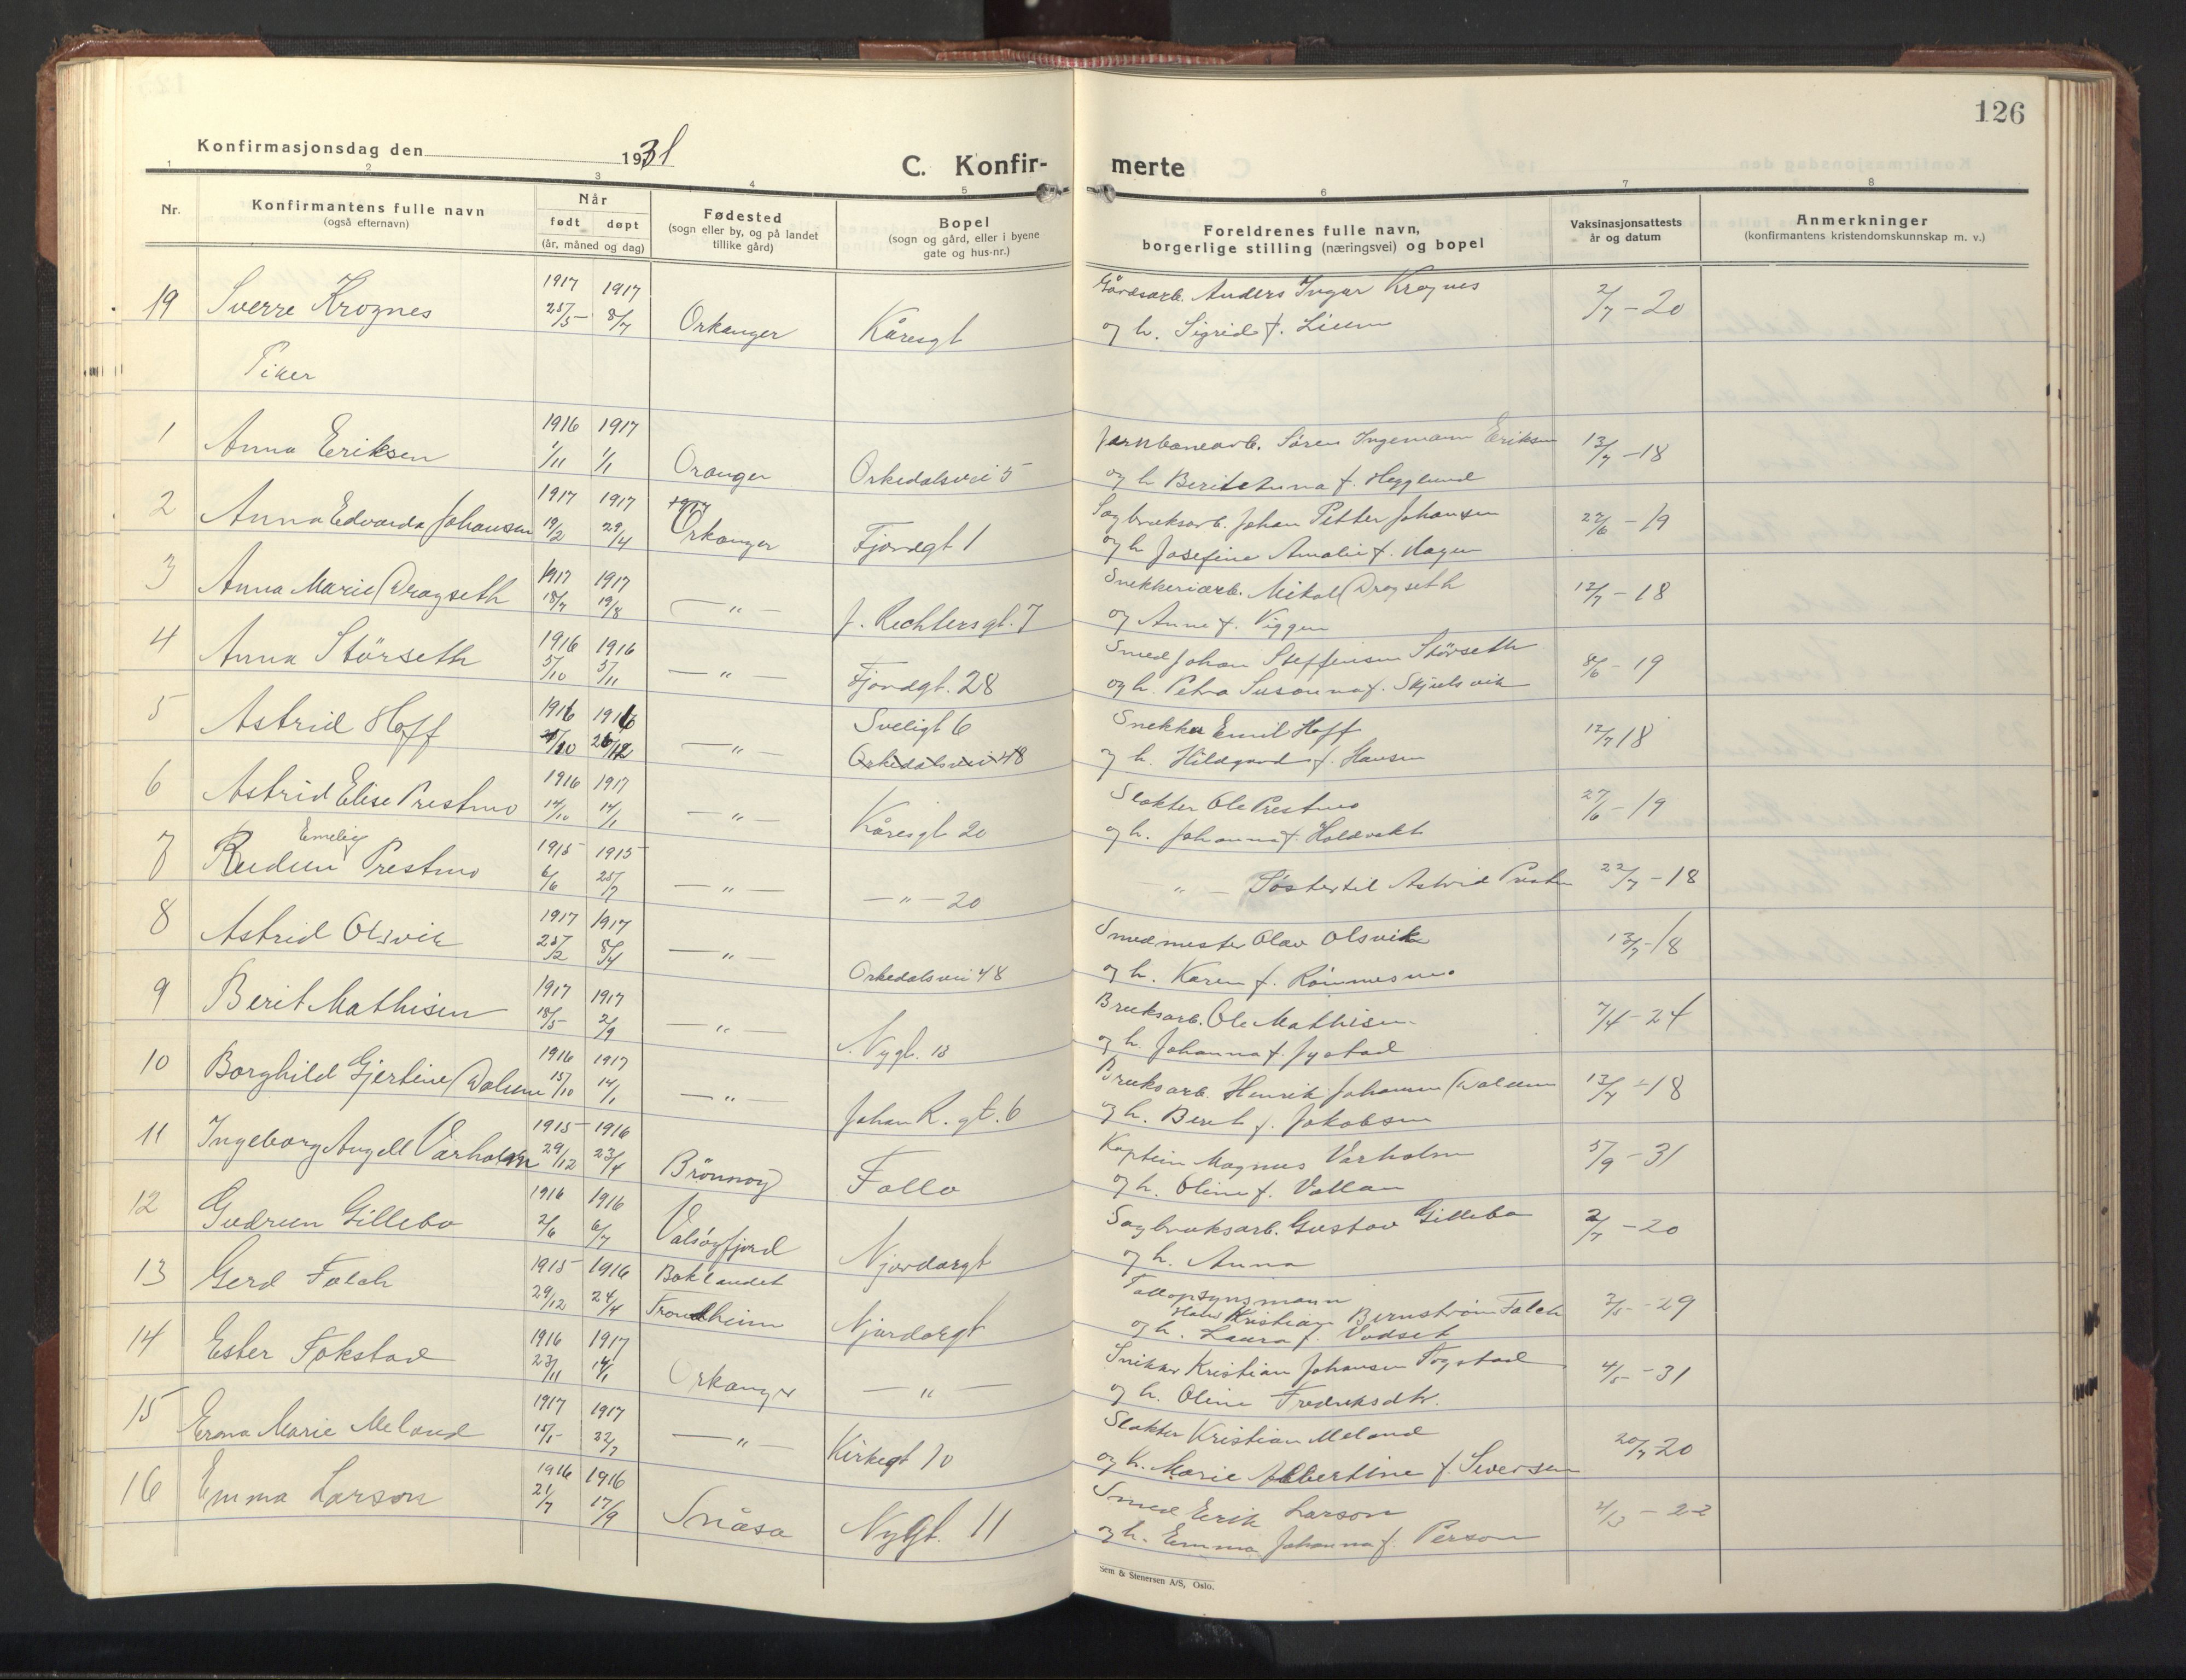 126
Konfirmasjonsdag den 1931
C. Konfir-
merte
1 2 3 4 5 6 7 8
Nr.
Konfirmantens fulle navn
(også efternavn)
Når
født døpt
(år, måned og dag)
Fødested
(sogn eller by, og på landet
tillike gård)
Bopel
(sogn og gård, eller i byene
gate og hus-nr.)
Foreldrenes fulle navn,
borgerlige stilling (næringsvei) og bopel
Vaksinasjonsattests
år og datum
Anmerkninger
(konfirmantens kristendomskunnskap m. v.)
19 Sverre Krognes 1917 25/5 1917 8/7 Orkanger Kåresgt Gårdsarb. Anders Ingar Krognes 2/7 - 20
og h. Sigrid f. Lium
Piker
1 Anna Eriksen 1916 1/11 1917 1/1 Oranger Orkedalsvei 5 Jernbanearb. Søren Ingemann Eriksen 13/7 - 18
og h Berit Anna f. Hegglund
2 Anna Edvarda Johansen 1917 19/2 1917 29/4 Orkanger Fjordgt 1 Sagbruksarb. Johan Petter Johansen 27/6 - 19
og h Josefine Amalie f. Hagen
3 Anna Marie Dragseth 1917 18/7 1917 19/8 — " — J. Richtersgt. 7 Snekkeriarb. Mikal Dragseth 12/7 - 18
og Anne f. Viggen
4 Anna Størseth 1916 5/10 1916 5/11 — " — Fjordgt. 28 Smed Johan Steffensen Størseth 8/6 - 19
og h. Petra Susanna f. Skjelsvik
5 Astrid Hoff 1916 1916 26/12 — " — Sveligt 6 Snekker Emil Hoff 12/7 18
Orkedalsvei 48 og h. Hildegard f. Hansen
6 Astrid Elise Prestmo 1916 14/10 1917 14/1 — " — Kåresgt 20 Slakter Ole Prestmo 27/6 - 19
og h. Johanna f. Holdvekt
7 Emelie Prestmo 1915 6/6 1915 25/7 — " — — " — 20 — " — Søster til Astrid Prestm 22/7 - 18
8 Astrid Olsvik 1917 25/2 1917 8/4 — " — Orkedalsvei 48 Smedmester Olav Olsvik 13/7 - 18
og h. Karen f. Rømmesmo
9 Berit Mathisen 1917 18/5 1917 2/9 — " — Nygt. 13 Bruksarb. Ole Mathisen 7/4 - 24
og h. Johanna f. Jystad
10 Borghild Gjertine Dalum 1916 15/10 1917 14/1 — " — Johan R. gt. 6 Bruksarb. Henrik Johansen Dalum 13/7 - 18
og h. Beret f. Jakobsen
11 Ingeborg Angell Varholm 1915 29/12 1916 23/4 Brönnöy Follo Kaptein Magnus Varholm 5/9 - 31
og h. Oline f. Vallan
12 Gudrun Gillebo 1916 2/6 1916 6/7 Valsöyfjord Njordargt Sagbruksarb. Gustav Gillebo 2/7 - 20
og h. Anna
13 Gerd Falch 1915 29/12 1916 24/4 Baklandet Trondheim Njordargt Tollopsynsmann 3/5 - 29
Hans Kristian Bernstrøm Falch
og h. Laura f. Vodset
14 Ester Fokstad 1916 23/11 1917 14/1 Orkanger — " — Snikker Kristian Johansen Fogstad 4/5 - 31
og h. Oline Fredriksdtr.
15 Erna Marie Meland 1917 15/5 1917 22/7 — " — Kirkegt 10 Slakter Kristian Meland 20/7 20
og h. Marie Albertine f. Sivertsen
16 Emma Larson 1916 21/7 1916 17/9 Snåsa Nygt. 11 Smed Erik Larson - 22
og h. Emma Johanna f. Person
Sem & Stenersen A/S, Oslo.